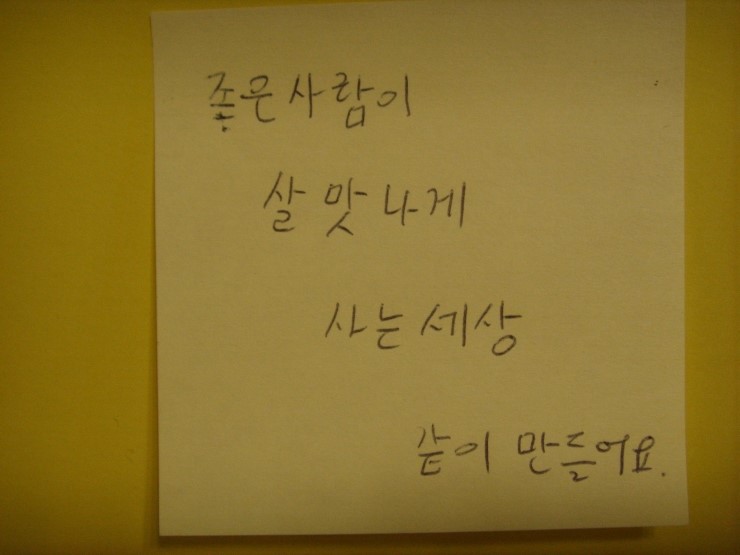 좋은 사람이
살 맛 나게
사는 세상
같이 만들어요.